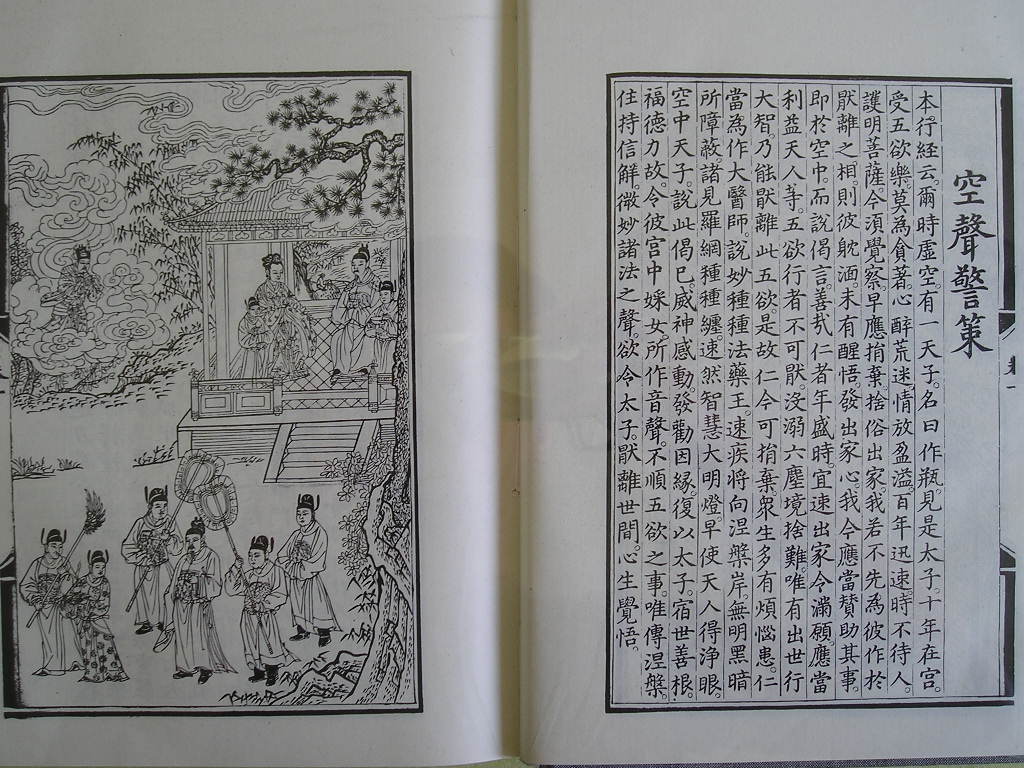 空聲警策
本行經云。爾時虛空。有一天子。名曰作瓶。見是太子。十年在宮。
受五欲樂。莫為貪著。心醉荒迷。情放盈溢。百年迅速。時不待人。
護明菩薩。今須覺察。早應捐棄。捨俗出家。我若不先為彼作於
猒離之相。則彼躭湎。未有醒悟。發出家心。我今應當贊助其事。
即於空中而說偈言。善哉仁者年盛時。宜速出家令滿願。應當
利益天人等。五欲行者不可猒。沒溺六塵境捨難。唯有出世行
大智。乃能猒離此五欲。是故仁今可捐棄。眾生多有煩惱患。仁
當為作大醫師。說妙種種法藥王。速疾將向涅槃岸。無明黑暗
所障蔽。諸見羅網種種纏。速然智慧大明燈。早使天人得淨眼。
空中天子。說此偈已。威神感動。發勸因緣。復以太子。宿世善根。
福德力故。令彼宮中婇女。所作音聲。不順五欲之事。唯傳涅槃。
住持信解。微妙諸法之聲。欲令太子。猒離世間。心生覺悟。
卷一